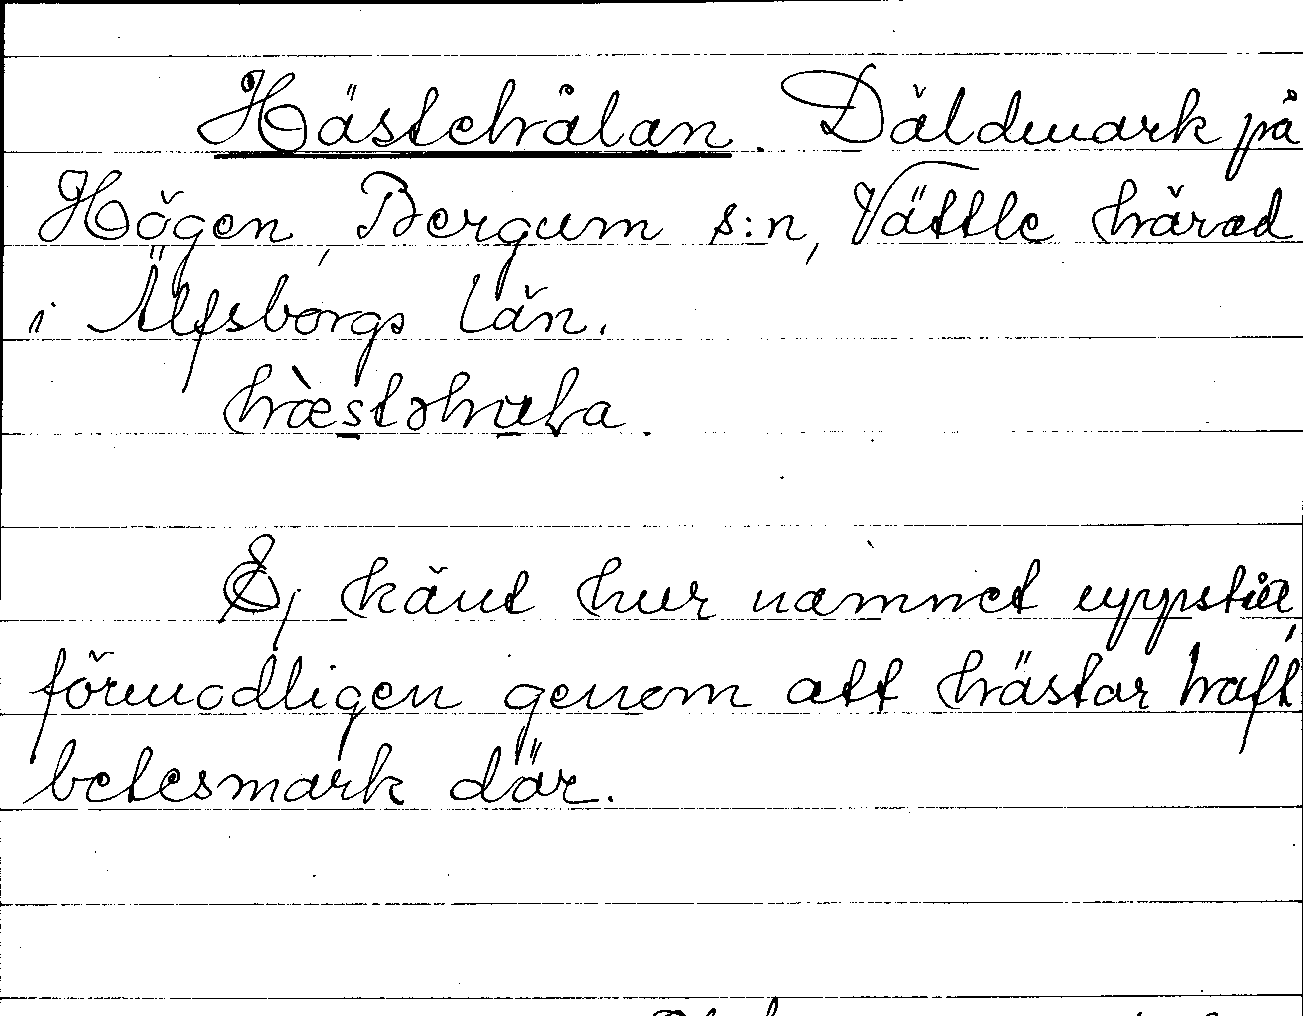 Hästehålan. Däldmark på
Högen, Bergum s:n, Vättle härad
i Älfsborgs län.
Ej känt hur namnet uppstått,
förmodligen genom att hästar haft
betesmark där.